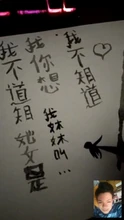 我不知道
我妹妹叫…
我你想
我不道知